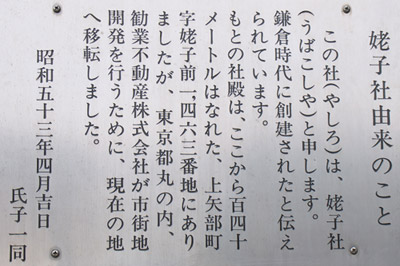 姥子社由来のこと
この社(やしろ)は、姥子社
(うばこしや)と申します。
鎌倉時代に創建されたと伝え
られています。
もとの社殿は、ここから百四十
メートルはなれた、上矢部町
字姥子前一、四六三番地にあり
ましたが、東京都丸の内、
勧業不動産株式会社が市街地
開発を行うために、現在の地
へ移転しました。
昭和五十三年四月吉日
氏子一同